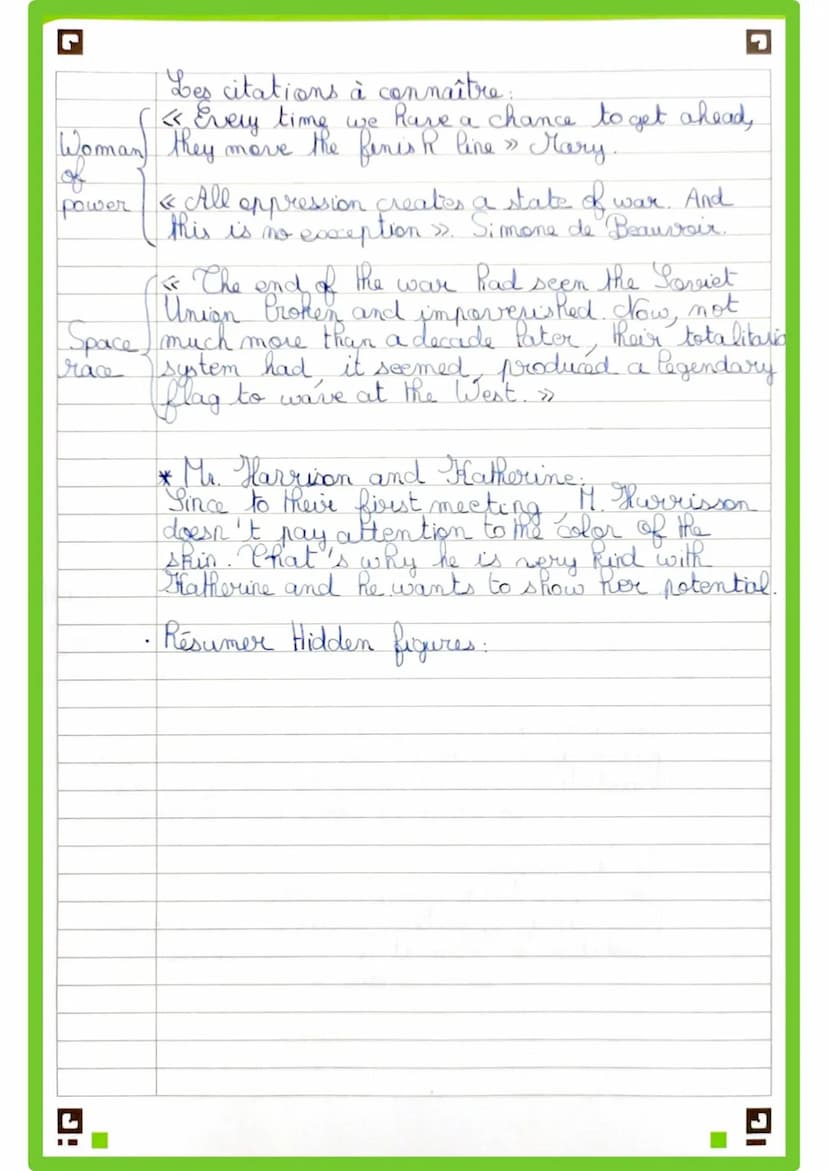 Les citations à connaître:
« Every time we have a chance to get ahead,
Woman they move the finish line » Mary.
of
power « All oppression creates a state of war. And
this is no exception ». Simone de Beauvoir.
« The end of the war had seen the Soviet
Union broken and impoverished. Now, not
Space much more than a decade later, their totalitaria
race system had, it seemed, produced a legendary
flag to wave at the West. »
* Mr. Harrison and Katherine:
Since to their first meeting, M. Harrisson
doesn't pay attention to the color of the
skin. That's why he is very kind with
Katherine and he wants to show her potential.
. Résumer Hidden figures: